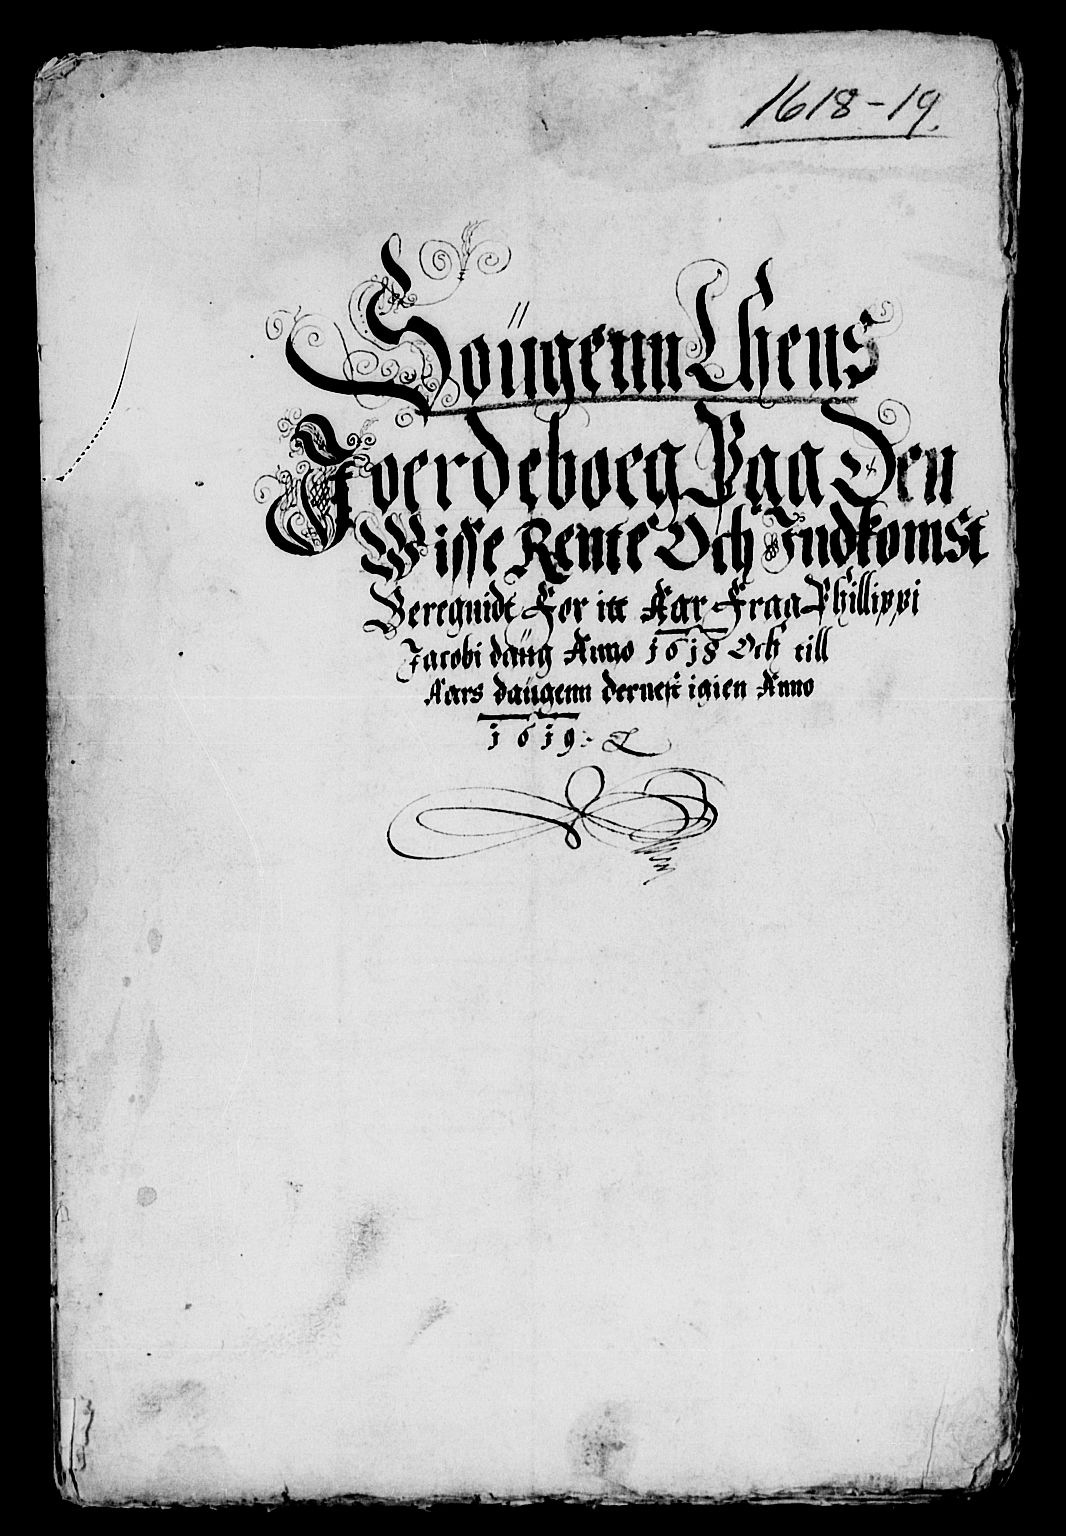 1618-19.
Söügenn Lhens
Joerdeboeg Paa Den
Wisse Rente Och Indkomst
Beregnidt For itt Aar Fraa Phillippi
Jacobi daüg Anno 1618 Och till
Aars daügenn dernest igien Anno
1619